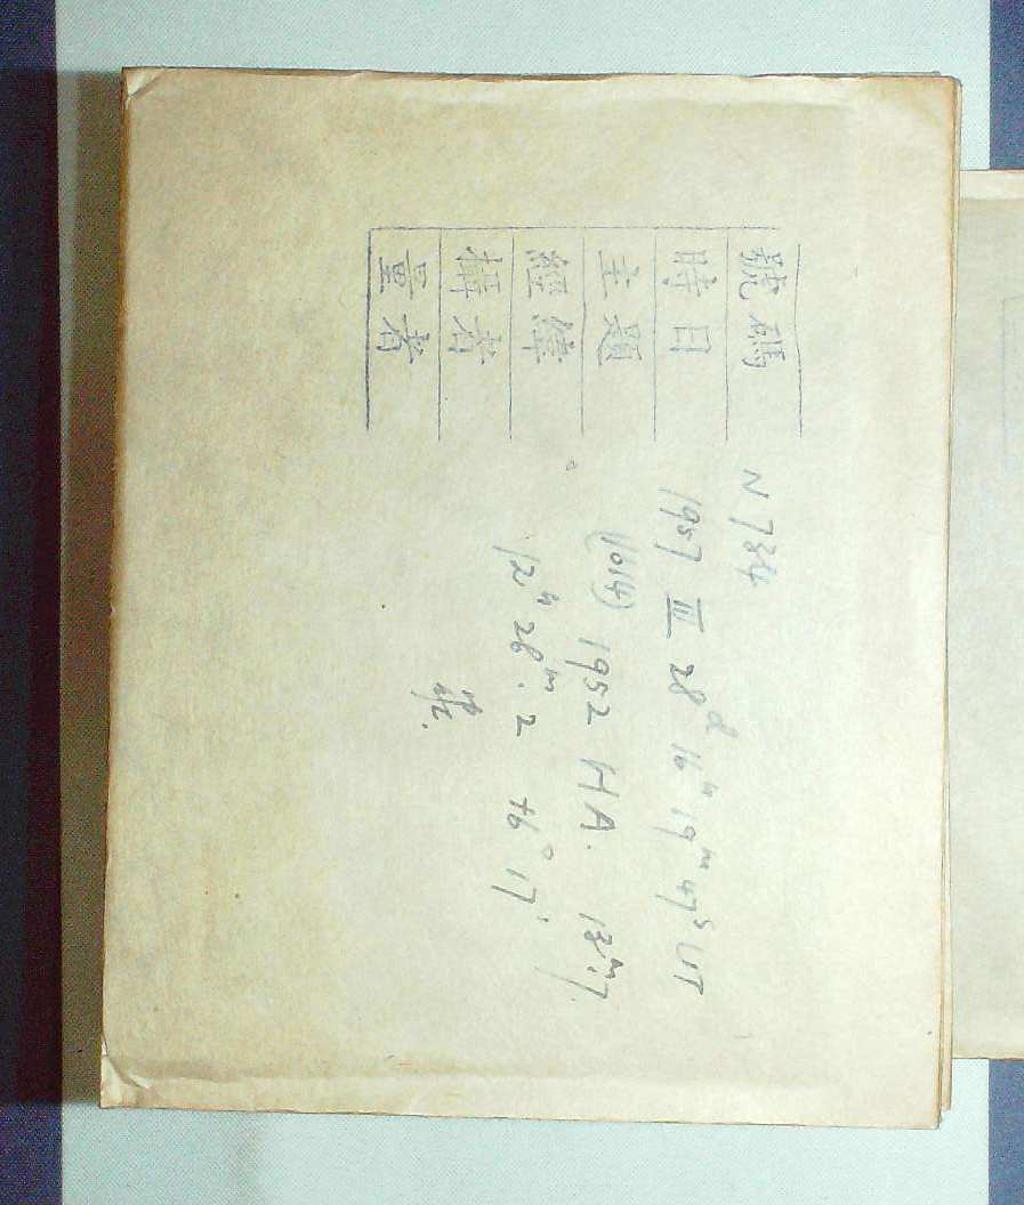 號碼 N 784
時日 1957 III 28d 16h 19m 47s UT
主題 (1014) 1952 HA. 13m.7
經緯 12h 28m.2 +6° 17'
攝者
量者